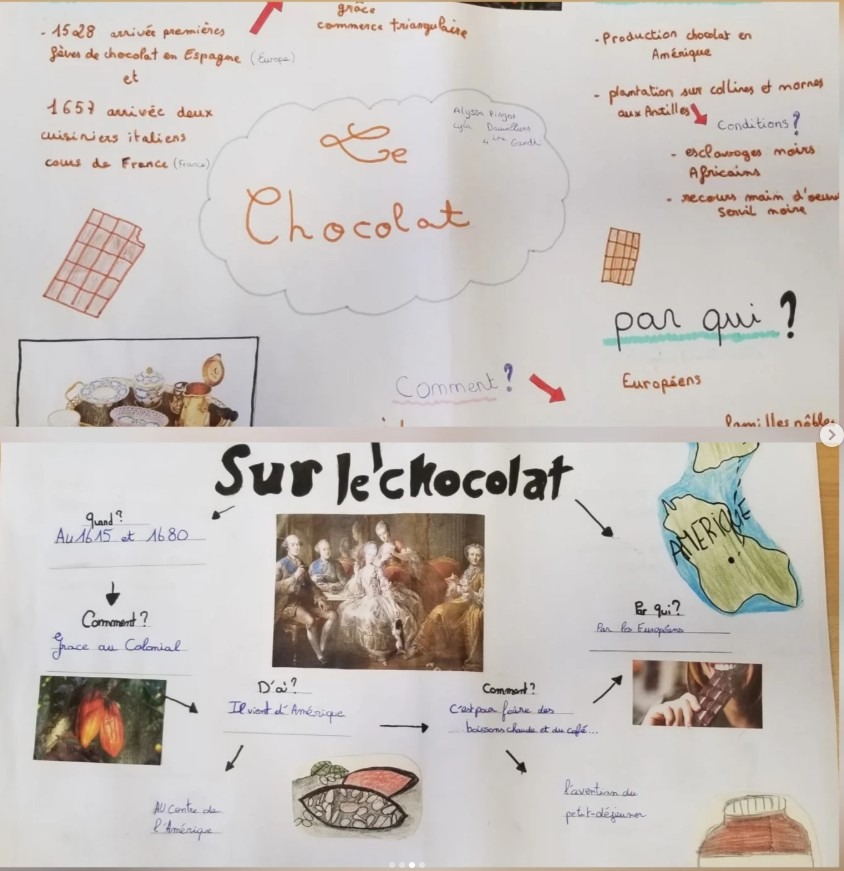 grâce
commerce triangulaire
- 1528 arrivée premières
fèves de chocolat en Espagne (Europe)
et
1657 arrivée deux
cuisiniers italiens
cour de France (France)
Le
Chocolat
Alyssa
4ème Gandhi
- Production chocolat en
Amérique
- plantation sur collines et mornes
aux Antilles
Conditions ?
- esclavages noirs
Africains
- recours main d'oeuv
Servil noire
par qui ?
Européens
Comment ?
familles nôble
Sur le chocolat
Quand ?
Au 1615 et 1680
Comment ?
Grace au Colonial
D'où ?
Il vient d'Amérique
Au centre de
l'Amérique
Comment ?
C'est pour faire des
boissons chaude et du café...
l'avention du
petit-déjeuner
Par qui ?
Par les Européens
AMERIQUE